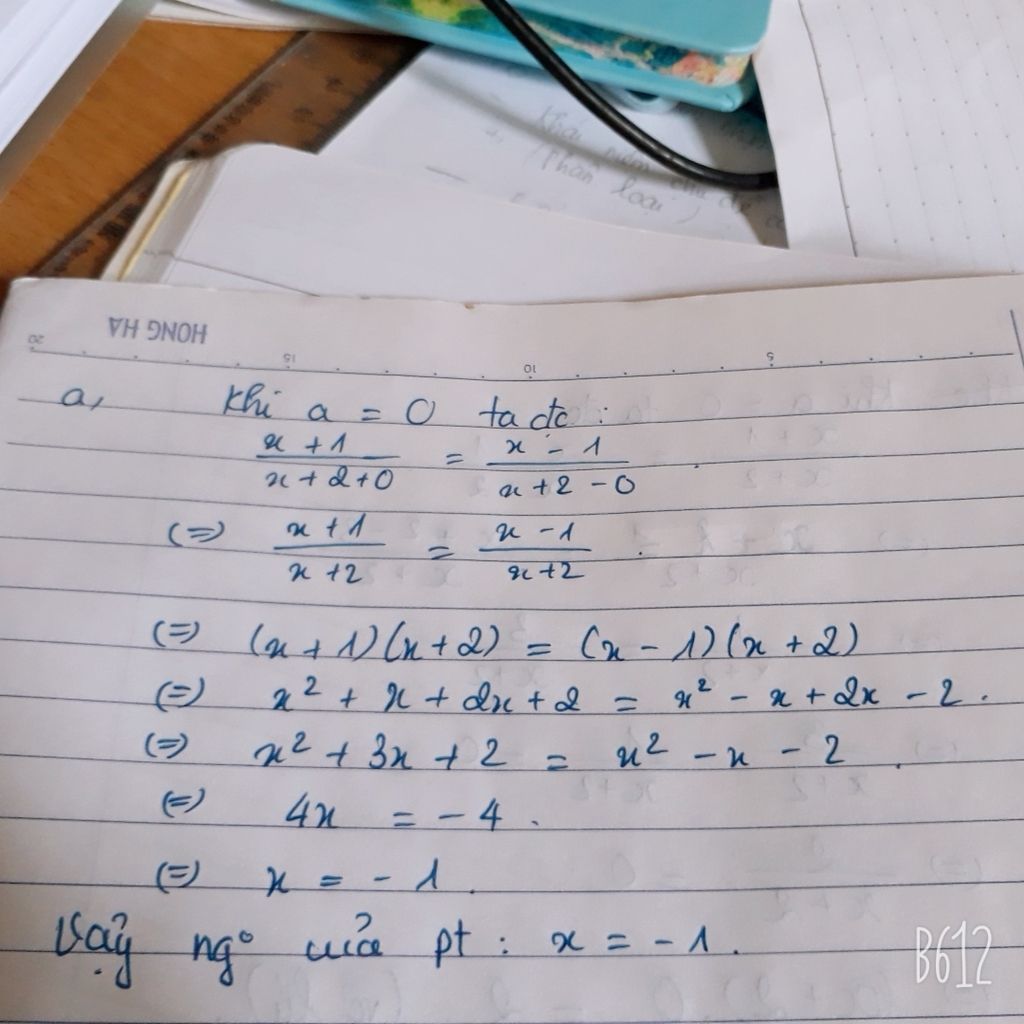 Khái niệm
Phân loại,
HONG HA
20 15 10 5
a, Khi a = 0 ta đc:
x + 1 / x + 2 + 0 = x - 1 / x + 2 - 0 .
(=) x + 1 / x + 2 = x - 1 / x + 2 .
(=) (x + 1)(x + 2) = (x - 1)(x + 2)
(=) x² + x + 2x + 2 = x² - x + 2x - 2 .
(=) x² + 3x + 2 = x² - x - 2 .
(=) 4x = - 4 .
(=) x = - 1 .
Vậy ngº của pt : x = - 1 .
B612